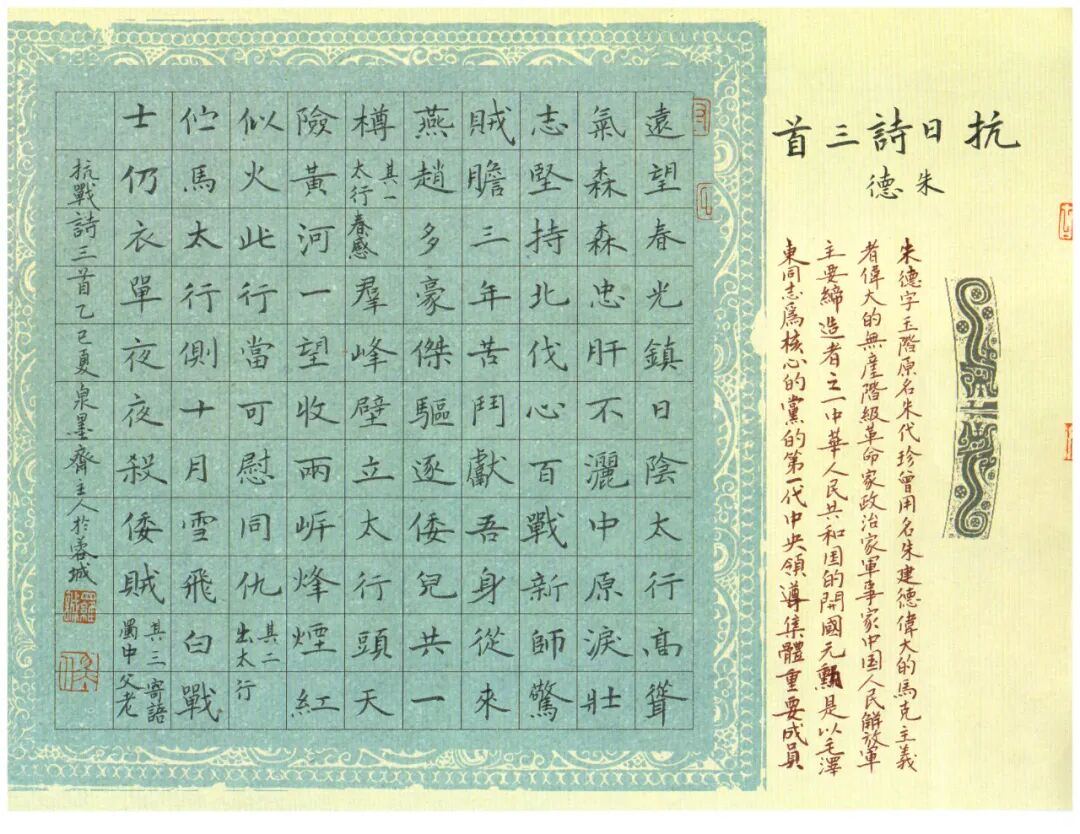 抗日詩三首
朱德
朱德字玉階原名朱代珍曾用名朱建德偉大的馬克主義
者偉大的無産階級革命家政治家軍事家中国人民解放軍
主要締造者之一中華人民共和国的開國元勳是以毛澤
東同志爲核心的黨的第一代中央領導集體重要成員
遠望春光鎮日陰太行高聳
氣森森忠肝不灑中原淚壯
志堅持北伐心百戰新師驚
賊膽三年苦鬥獻吾身從來
燕趙多豪傑驅逐倭兒共一
樽其一太行春感羣峰壁立太行頭天
險黃河一望收兩岸烽煙紅
似火此行當可慰同仇其二出太行
佇馬太行側十月雪飛白戰
士仍衣單夜夜殺倭賊其三寄語蜀中父老
抗戰詩三首乙巳夏泉墨齋主人於蓉城